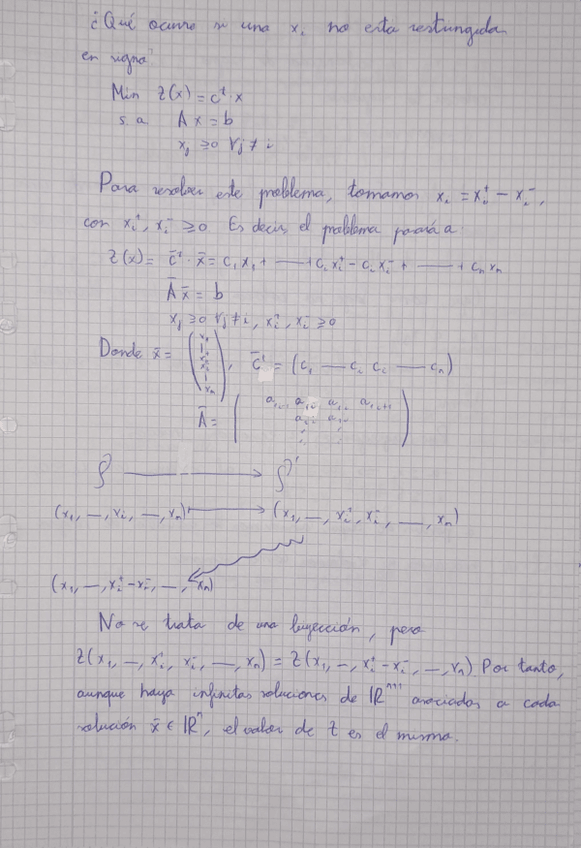 ¿Qué ocurre si una xᵢ no está restringida
en signo?
Min Z(x) = cᵗ·x
s.a A x = b
xⱼ ≥0 ∀j ≠ i
Para resolver este problema, tomamos xᵢ = xᵢ⁺ − xᵢ⁻,
con xᵢ⁺, xᵢ⁻ ≥0 Es decir el problema pasará a
Z(x) = c̄ᵗ·x̄ = c₁x₁ + — + cᵢxᵢ⁺ − cᵢxᵢ⁻ + — + cₙxₙ
Ā x̄ = b
xⱼ ≥0 ∀j ≠ i, xᵢ⁺, xᵢ⁻ ≥0
Donde x̄ = , c̄ᵗ = (c₁ — cᵢ cᵢ — cₙ)
Ā =
(x₁, —, xᵢ, —, xₙ) ⟼ (x₁, —, xᵢ⁺, xᵢ⁻, —, xₙ)
(x₁, —, xᵢ⁺−xᵢ⁻, —, xₙ)
No se trata de una biyección, pero
Z(x₁, —, xᵢ⁺, xᵢ⁻, —, xₙ) = Z(x₁, —, xᵢ⁺−xᵢ⁻, —, xₙ) Por tanto,
aunque haya infinitas soluciones de ℝⁿ⁺¹ asociadas a cada
solución x̄ ∈ ℝⁿ, el valor de z es el mismo.